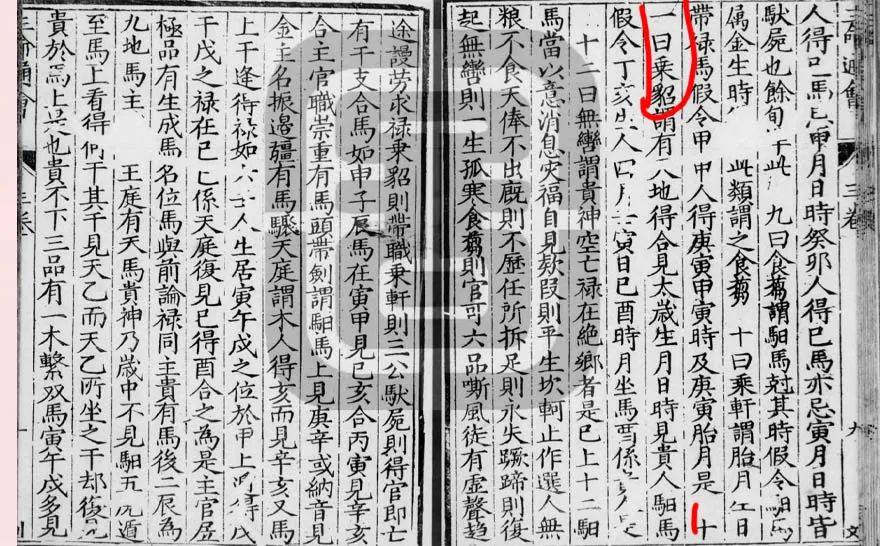 三命通會
三卷
人得巳馬忌申月日時癸卯人得巳馬亦忌寅月日時皆
馱屍也餘旬 九曰食蒭謂馹馬尅其時假令
属金生時 此類謂之食蒭 十曰乘軒謂胎月 日
帶禄馬假令甲 人得庚寅甲寅時及庚寅胎月是 十
一曰乘貂謂有 地得合見太歳生月日時見貴人馹馬
假令丁亥 人 月 寅日巳酉時月坐馬 係
十二曰無轡謂貴神空亡禄在絶鄉者是巳上十二馹
馬當以意消息灾福自見欬叚則平生坎軻止作選人無
粮不食天俸不出廐則不歴任所拆足則永失蹶蹄則復
起無轡則一生孤寒食蒭則官可六品嘶風徒有虚聲趋
途謾劳求禄乘貂則帶職乘軒則三公馱屍則得官即亡
有干支合馬如申子辰馬在寅甲見巳亥合丙寅見辛亥
合主官職崇重有馬頭帶劍謂馹馬上見庚辛或納音見
金主名振邉疆有馬驟天庭謂木人得亥而見辛亥又馬
上干逢得禄如 人生居寅午戌之位於甲上 戊
干戊之禄在巳 係天庭復見巳得酉合之為是主官居
極品有生成馬名位馬與前論禄同主貴有馬後二辰為
九地馬主 王庭有天馬貴神乃歳中不見馹五 遁
至馬上看得何干其干見天乙而天乙所坐之干却復
貴於馬上是也貴不下三品有一木繫双馬寅午戌多見